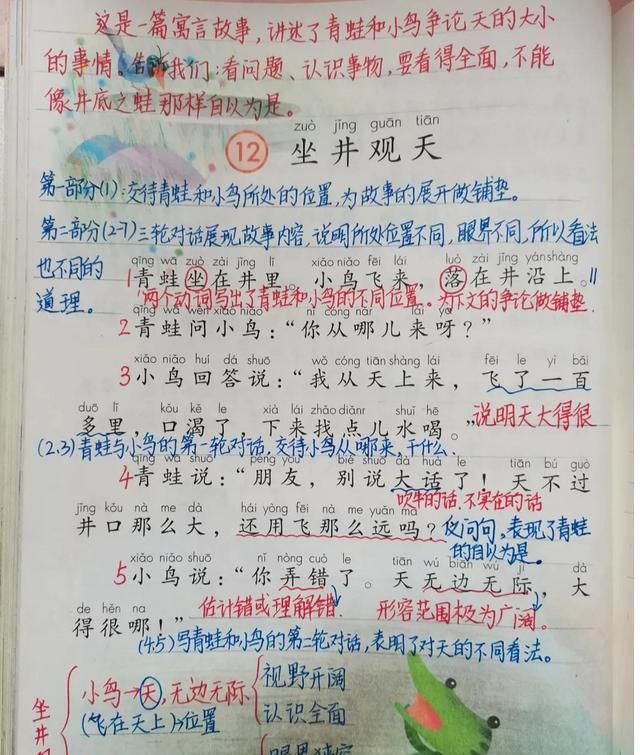 这是一篇寓言故事，讲述了青蛙和小鸟争论天的大小
的事情。告诉我们：看问题、认识事物，要看得全面，不能
像井底之蛙那样自以为是。
zuò jǐng guān tiān
12 坐井观天
第一部分(1)：交待青蛙和小鸟所处的位置，为故事的展开做铺垫。
第二部分(2-7)三轮对话展现故事内容，说明所处位置不同，眼界不同，所以看法
也不同的
道理。
qīng wā zuò zài jǐng lǐ xiǎo niǎo fēi lái luò zài jǐng yán shàng
1青蛙坐在井里。小鸟飞来，落在井沿上。
两个动词写出了青蛙和小鸟的不同位置。为下文的争论做铺垫.
qīng wā wèn xiǎo niǎo nǐ cóng nǎr lái ya
2青蛙问小鸟：“你从哪儿来呀？”
xiǎo niǎo huí dá shuō wǒ cóng tiān shàng lái fēi le yì bǎi
3小鸟回答说：“我从天上来，飞了一百
duō lǐ kǒu kě le xià lái zhǎo diǎnr shuǐ hē
多里，口渴了，下来找点儿水喝。”说明天大得很
(2.3)青蛙与小鸟的第一轮对话，交待小鸟从哪来，干什么.
qīng wā shuō péng you bié shuō dà huà le tiān bú guò
4青蛙说：“朋友，别说大话了！天不过
吹牛的话.不实在的话
jǐng kǒu nà me dà hái yòng fēi nà me yuǎn ma
井口那么大，还用飞那么远吗？”反问句，表现了青蛙
的自以为是。
xiǎo niǎo shuō nǐ nòng cuò le tiān wú biān wú jì dà
5小鸟说：“你弄错了。天无边无际，大
de hěn na
得很哪！”估计错或理解错. 形容范围极为广阔.
(4.5)写青蛙和小鸟的第二轮对话，表明了对天的不同看法。
坐井
小鸟→天，无边无际
(飞在天上)→位置
视野开阔
认识全面
眼界狭窄